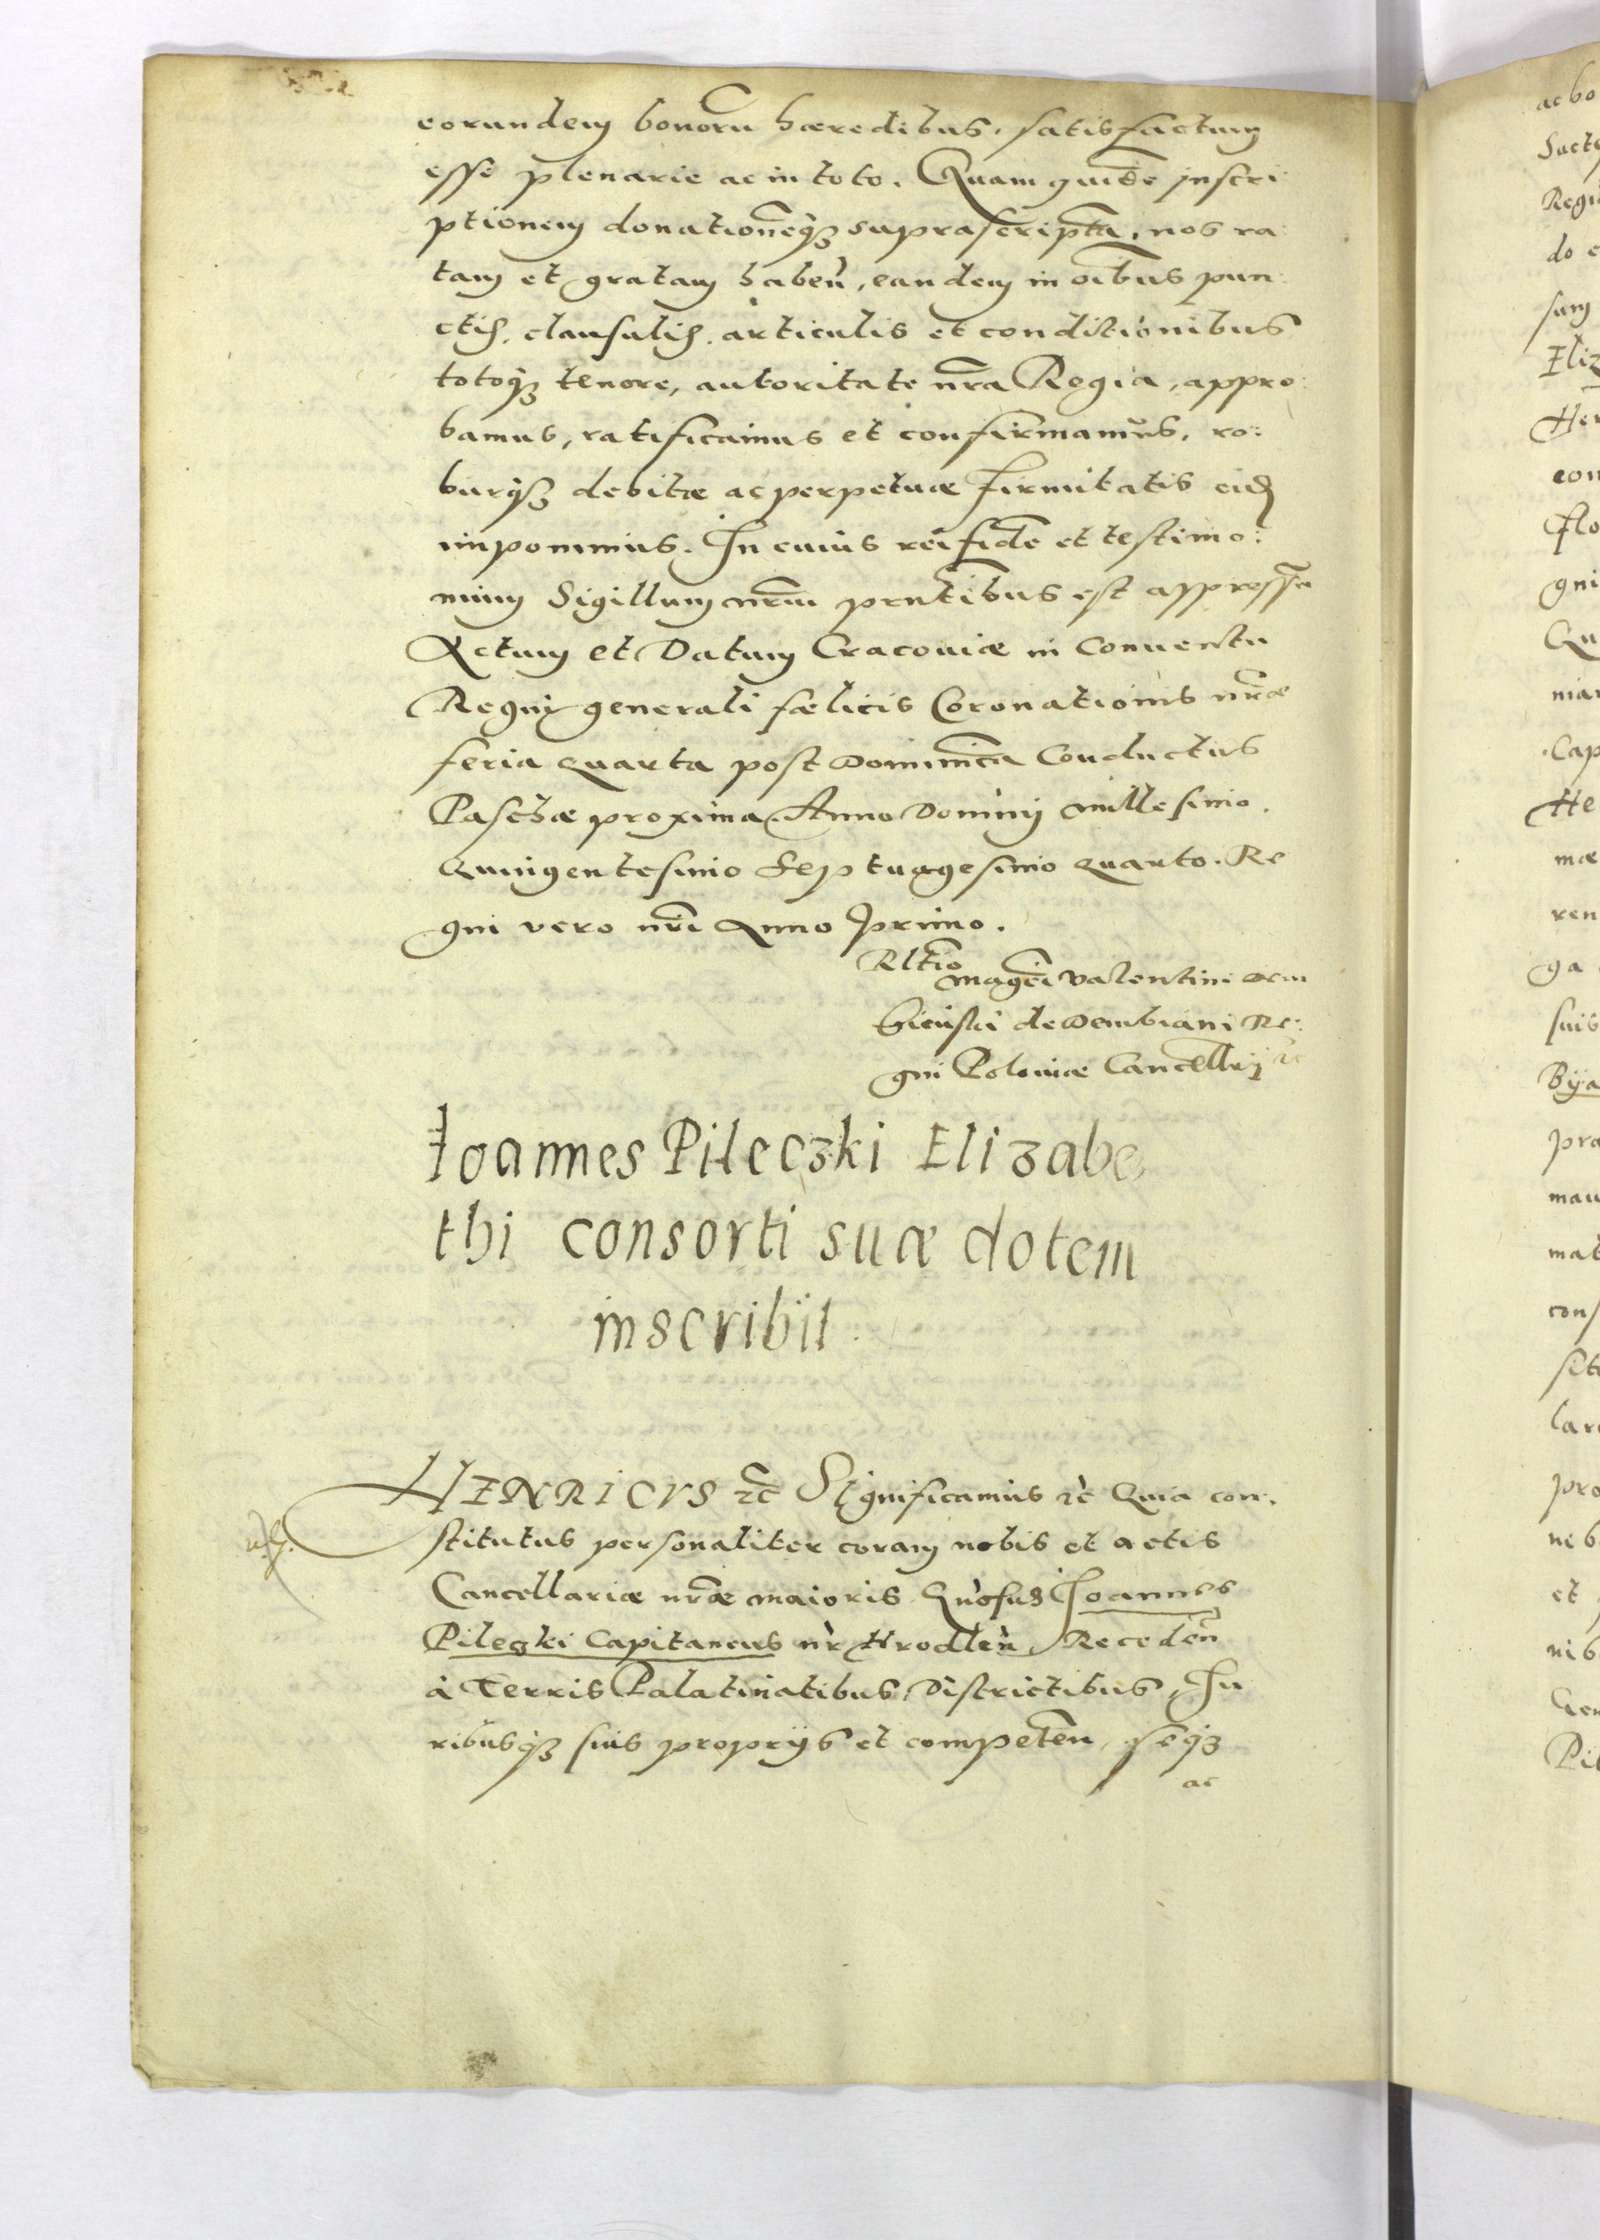 eorundem bonorū hæredibus, satisfactum
esse plenarie ac in toto. Quam quidē jnscri
ptionem donationēq3 suprascriptā, nos ra:
tam et gratam habeñ, eandem in oībus pun:
ctis, clausulis, articulis et conditionibus
totoq3 tenore, autoritate nr̄a Regia, appro:
bamus, ratificamus et confirmamus, ro:
burq3 debitæ ac perpetuæ firmitatis eid
imponimus. In cuius rei fidē et testimo:
nium Sigillum nr̄um pntībus est appressū
Actum et Datum Cracouiæ in Conuentu
Regni generali fælicis Coronationis nr̄æ
feria quarta post Dominicā Conductus
Paschæ proxima Anno Dominj millesimo.
Quingentesimo Septuagesimo quarto. Re
gni vero nr̄i Anno primo.
Rltio
magci Valentini Dem
bienski de Dembiani Re:
gni Poloniæ Cancellrij
Joannes Pileczki Elizabe,
thi consorti suæ dotem
inscribit
HENRICVS ꝛc̄ Significamus ꝛc̄ Quia con,
stitutus personaliter coram nobis et actis
Cancellariæ nr̄æ maioris Gnosus Joannes
Pileczki Capitaneus nr̄ Hrodleñ, Recedeñ
à Terris Palatinatibus Districtibus, Iu
ribusq3 suis proprijs et competeñ, seq3
ac